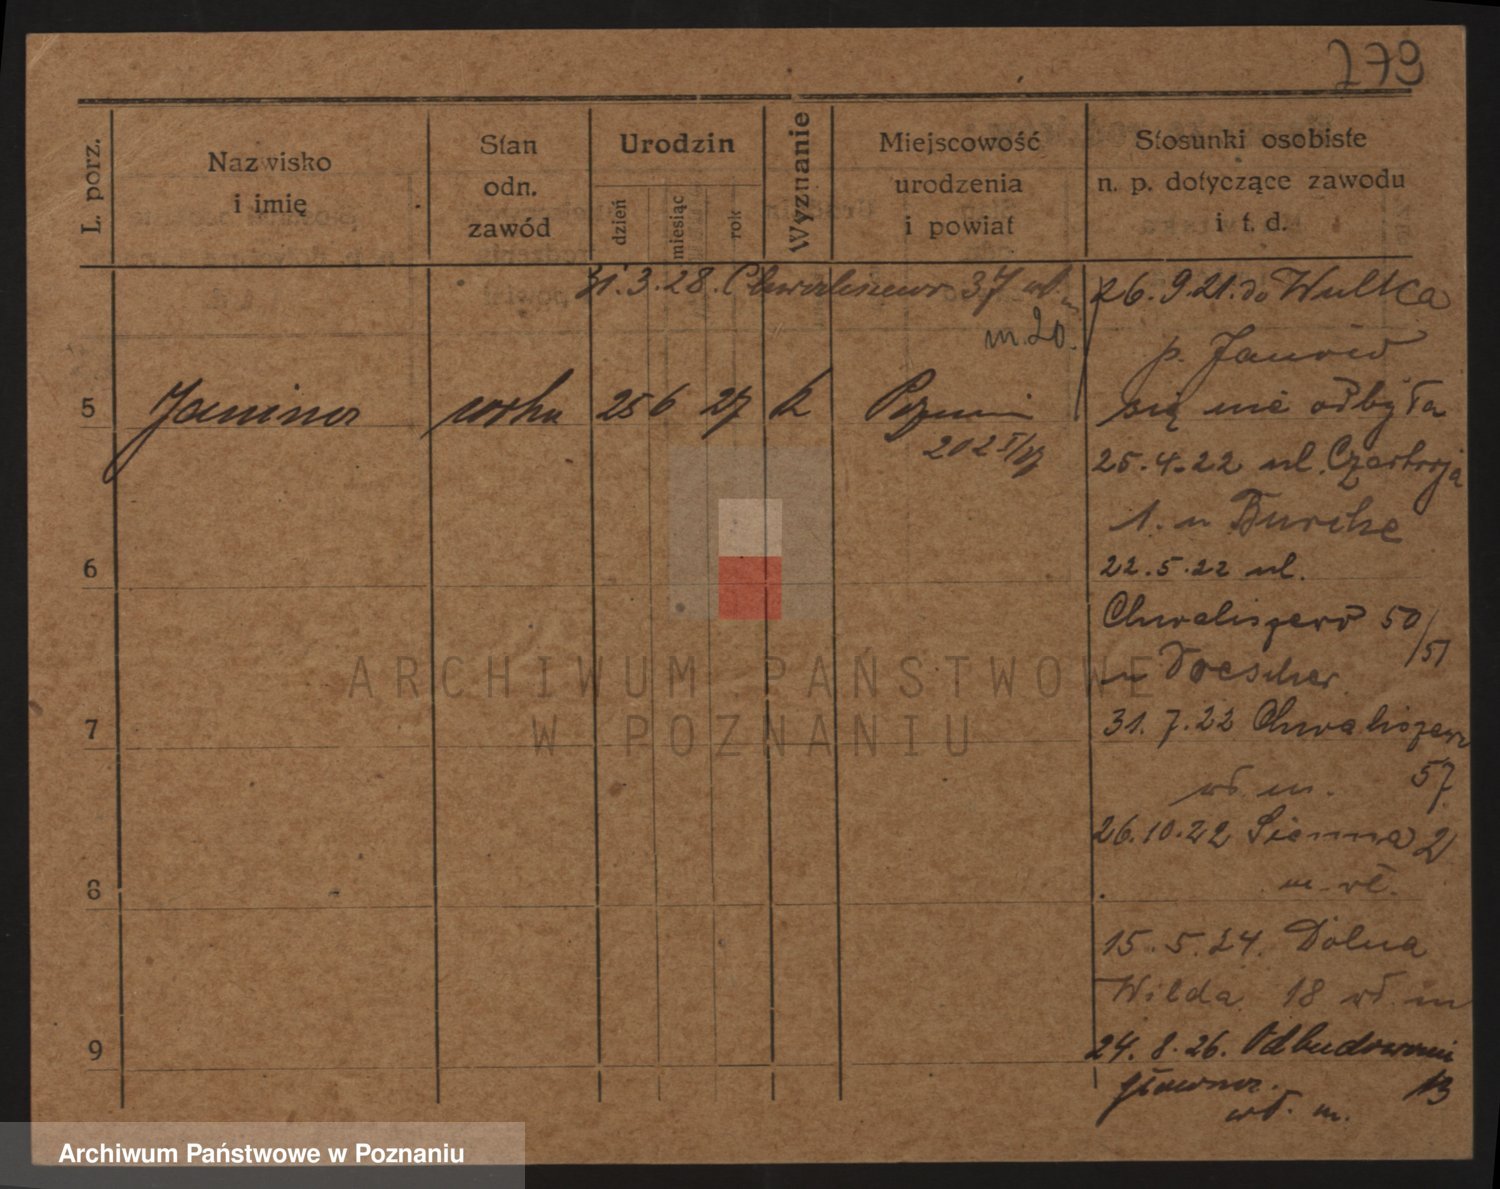 279
L. porz.
Nazwisko
i imię
Stan
odn.
zawód
Urodzin
dzień
miesiąc
rok
Wyznanie
Miejscowość
urodzenia
i powiat
Stosunki osobiste
n. p. dotyczące zawodu
i t. d.
31.3.28. Chwaliszewo 37 wł. m
m. 20.
5 Janina córka 25 6 27 k Poznań
202
6
7
8
9
26. 9 21. do Wulka
p. Janów
się nie odbyła
25.4.22 ul. Czartorja
1. u
22.5.22 ul.
Chwaliszewo 50/51
u Drescher
31.7.22 Chwaliszewo
57
wł. m.
26.10.22 Sienna 2
m. wł.
15.5.24. Dolna
Wilda 18 wł. m
24. 8. 26.
główna. 13
wł. m.
ARCHIWUM PAŃSTWOWE
W POZNANIU
Archiwum Państwowe w Poznaniu